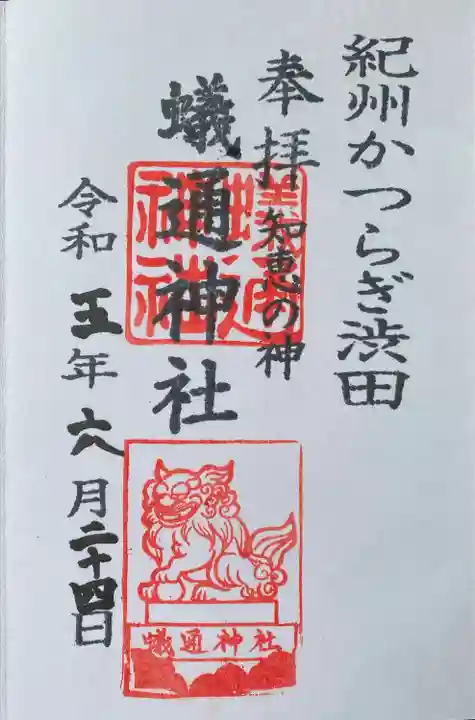 紀州かつらぎ渋田
奉拝
知恵の神
蟻通神社
令和五年六月二十四日
蟻通神社
蟻通神社